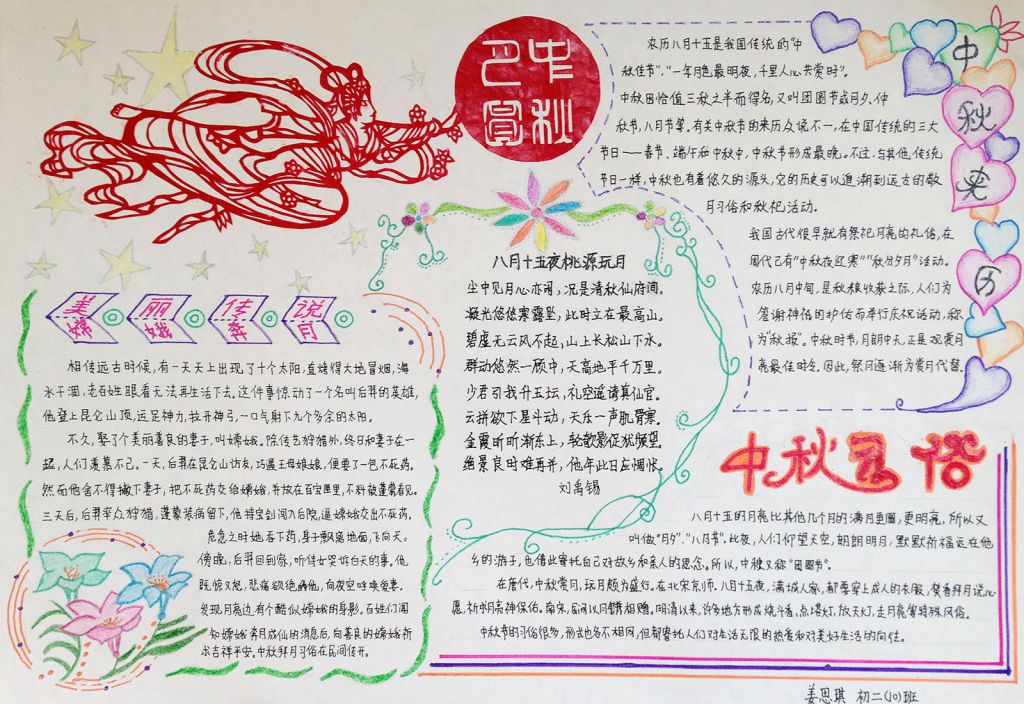 中秋
已賞
中秋来历
农历八月十五是我国传统的“中
秋佳节”,“一年月色最明夜,千里人心共赏时”。
中秋因恰值三秋之半而得名,又叫团圆节或月夕、仲
秋节,八月节等。有关中秋节的来历众说不一,在中国传统的三大
节日——春节、端午和中秋中,中秋节形成最晚。不过,与其他传统
节日一样,中秋也有着悠久的源头,它的历史可以追溯到远古的敬
月习俗和秋祀活动。
我国古代很早就有祭祀月亮的礼俗,在
周代已有“中秋夜迎寒”“秋分夕月”活动。
农历八月中旬,是秋粮收获之际,人们为
答谢神佑的护佑而举行庆祝活动,称
为“秋报”。中秋时节,月朗中天,正是观赏月
亮最佳时令。因此,祭月逐渐为赏月代替。
八月十五夜桃源玩月
尘中见月心亦闲,况是清秋仙府间。
凝光悠悠寒露坠,此时立在最高山。
碧虚无云风不起,山上长松山下水。
群动悠然一顾中,天高地平千万里。
少君引我升玉坛,礼空遥请真仙官。
云拼欲下星斗动,天乐一声肌骨寒。
金霞昕昕渐东上,轮欹影促犹频望。
绝景良时难再并,他年此日应惆怅。
刘禹锡
美丽传说
嫦娥奔月
相传远古时候,有一天天上出现了十个太阳,直烤得大地冒烟,海
水干涸,老百姓眼看无法再生活下去。这件事惊动了一个名叫后羿的英雄,
他登上昆仑山顶,运足神力,拉开神弓,一口气射下九个多余的太阳。
不久,娶了个美丽善良的妻子,叫嫦娥。除传艺狩猎外,终日和妻子在一
起,人们羡慕不已。一天,后羿在昆仑山访友,巧遇王母娘娘,便要了一包不死药。
然而他舍不得撇下妻子,把不死药交给嫦娥,并放在百宝匣里,不料被蓬蒙看见。
三天后,后羿率众狩猎,蓬蒙装病留下,他持宝剑闯入后院,逼嫦娥交出不死药。
危急之时她吞下药,身子飘离地面,飞向天。
傍晚,后羿回到家,听侍女哭诉白天的事,他
既惊又怒,悲痛欲绝的他,向夜空呼唤爱妻。
发现月亮边有个酷似嫦娥的身影。百姓们闻
知嫦娥奔月成仙的消息后,向善良的嫦娥祈
求吉祥平安。中秋拜月习俗在民间传开。
中秋习俗
八月十五的月亮比其他几个月的满月更圆,更明亮,所以又
叫做“月夕”,“八月节”。此夜,人们仰望天空,朗朗明月,默默祈福远在他
乡的游子,也借此寄托自己对故乡和亲人的思念。所以,中秋又称“团圆节”。
在唐代,中秋赏月,玩月颇为盛行。在北宋京师,八月十五夜,满城人家,都要穿上成人的衣服,焚香拜月说心
愿,祈求月亮神保佑。南宋,民间以月饼相赠。明清以来,许多地方形成烧斗香,点塔灯,放天灯,走月亮等特殊风俗。
中秋节的习俗很多,形式也各不相同,但都寄托人们对生活无限的热爱和对美好生活的向往。
姜恩琪 初二(10)班